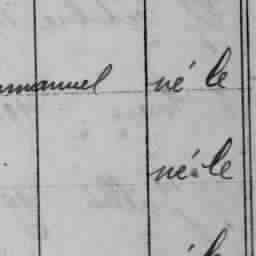 mmanuel né le
née le